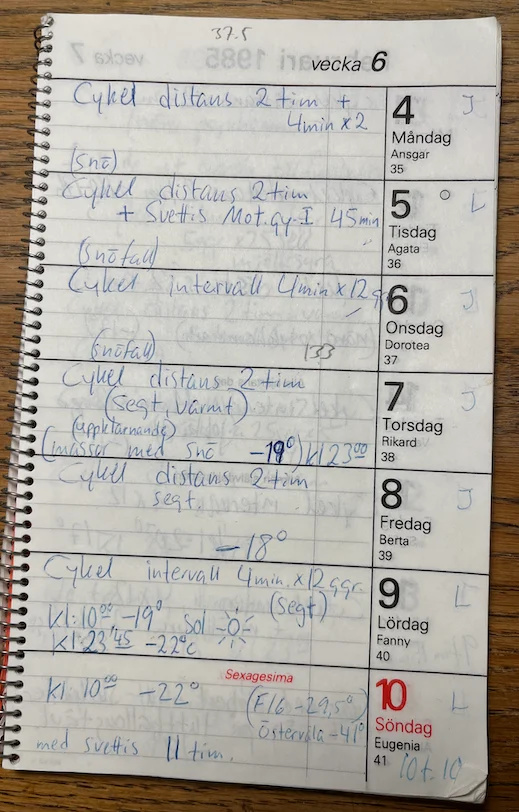 37.5
vecka 6
Cykel distans 2 tim +
4min x 2
(snö)
4
J
Måndag
Ansgar
35
Cykel distans 2 tim
+ Svettis Mot.gy-I 45 min
(snöfall)
5
L
Tisdag
Agata
36
Cykel intervall 4min x 12 gr
(snöfall)
133
6
J
Onsdag
Dorotea
37
Cykel distans 2 tim
(segt, varmt)
(uppklarnande)
(massor med snö -19°) kl 23⁰⁰
7
J
Torsdag
Rikard
38
Cykel distans 2 tim
segt.
-18°
8
J
Fredag
Berta
39
Cykel intervall 4min. x 12 ggr.
(segt)
kl: 10⁰⁰ -19° sol
kl: 23⁴⁵ -22°c
9
L
Lördag
Fanny
40
Sexagesima
kl 10⁰⁰ -22° (F16 -29,5°
Östervåla -41°
med svettis 11 tim.
10
L
Söndag
Eugenia
41
10t. 10